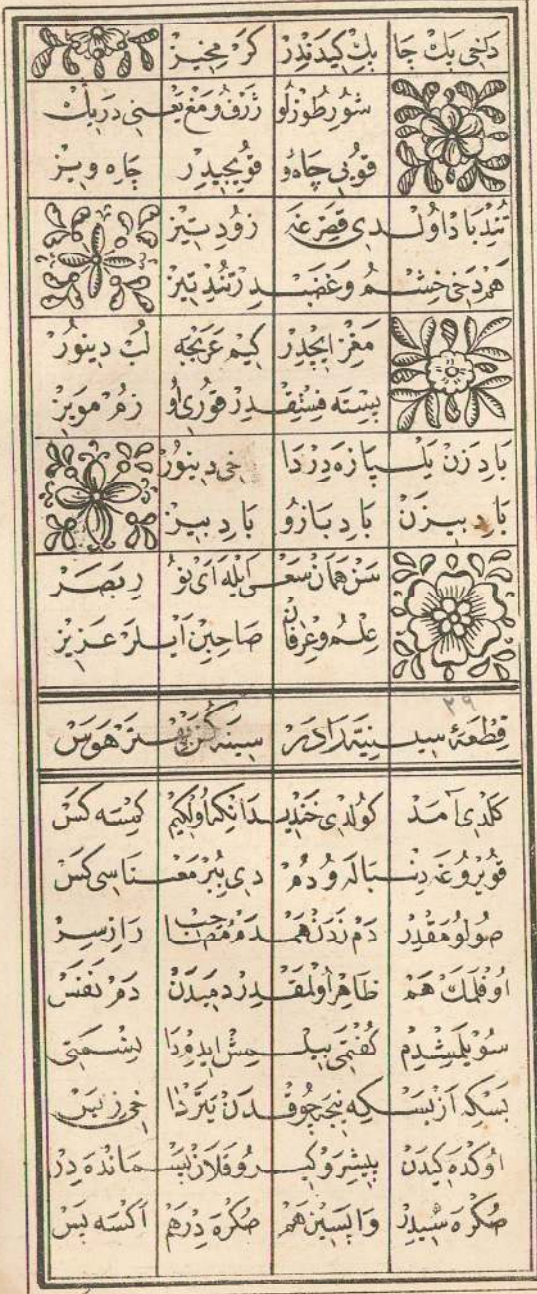 دخی بك چا بك كیدندر كرم خیز
شور طوزلو ژرف و مغ یعنی درین
قویی چاه و قویجیدر چاه ویز
تندباد اولدی قصرغه زود تیز
هم دخی خشم و غضبدر تند تیز
مغز ایچدر كیم عربجه لب دینور
پسته فستقدر قوری او زم مویز
بادزن یلپازه در داخی دینور
باد بیزن باد بازو باد بیز
سن همان سعی ایله ای نور بصر
علم و عرفان صاحبن ایلر عزیز
٢٩
قطعهٔ سینیه در سینه كن هوس
كلدی آمد كولدی خندید دانكه اولكیم كسنه كس
قویروغه دنباله و دم دی بر معناسی كس
صولومقدر دم زدن همدم مصاحب راز سر
اوفلمك هم ظاهر اولمقدر دمیدن دم نفس
سویلمشدم كفتمی بیلمش ایدم دانشمتی
بسكه از بسكه نیجه چوقدن یتر داخی زبس
اوكده كیدن پیشرو كیرو قلان پسمانده در
صكره سیدر واپسین هم صكره درهم اكسه پس